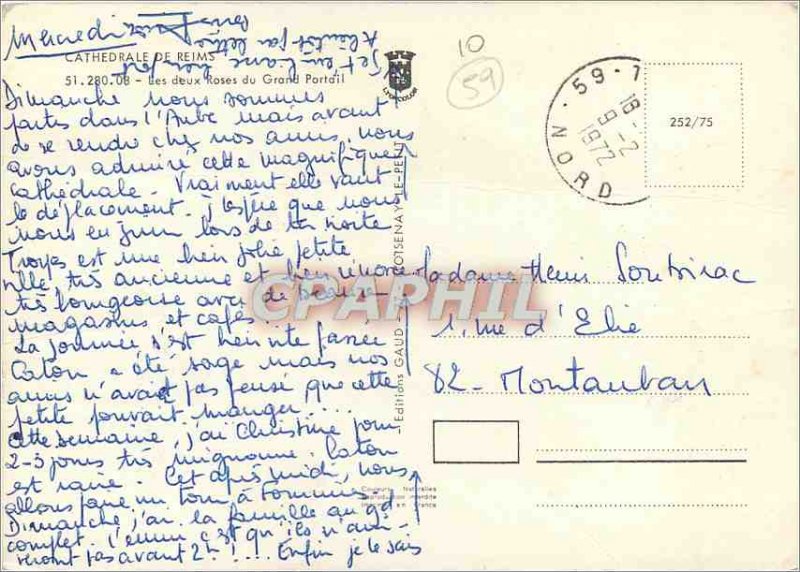 Mercredi
CATHEDRALE DE REIMS
51.280.08 - Les deux Roses du Grand Portail
Dimanche nous sommes
partis dans l'Aube mais avant
de se rendre chez nos amis, nous
avons admiré cette magnifique
cathédrale. Vraiment elle vaut
le déplacement. J'espère que nous
nous en juin lors de ta visite
Troyes est une bien jolie petite
ville, très ancienne et bien
très bourgeoise avec de beaux
magasins et cafés.
La journée s'est bien vite passée
Caton a été sage mais nos
amis n'avait pas pensé que cette
petite pouvait manger....
Cette semaine, j'ai Christine pour
2-3 jours très mignonne. Caton
est ravie. Cet après midi, nous
allons faire un tour à
Dimanche, j'ai la famille au gd
complet. L'ennui c'est qu'ils n'arri-
veront pas avant 2h !... Enfin je le sais
à bientôt par lettre
LYONCOLOR
10
59
59-7
18-2
9
1972
NORD
252/75
Editions GAUD
Madame Henri Soubirac
1, rue d'Elie
82 - Montauban
CPAPHIL
Couleurs Naturelles
Reproduction interdite
en France